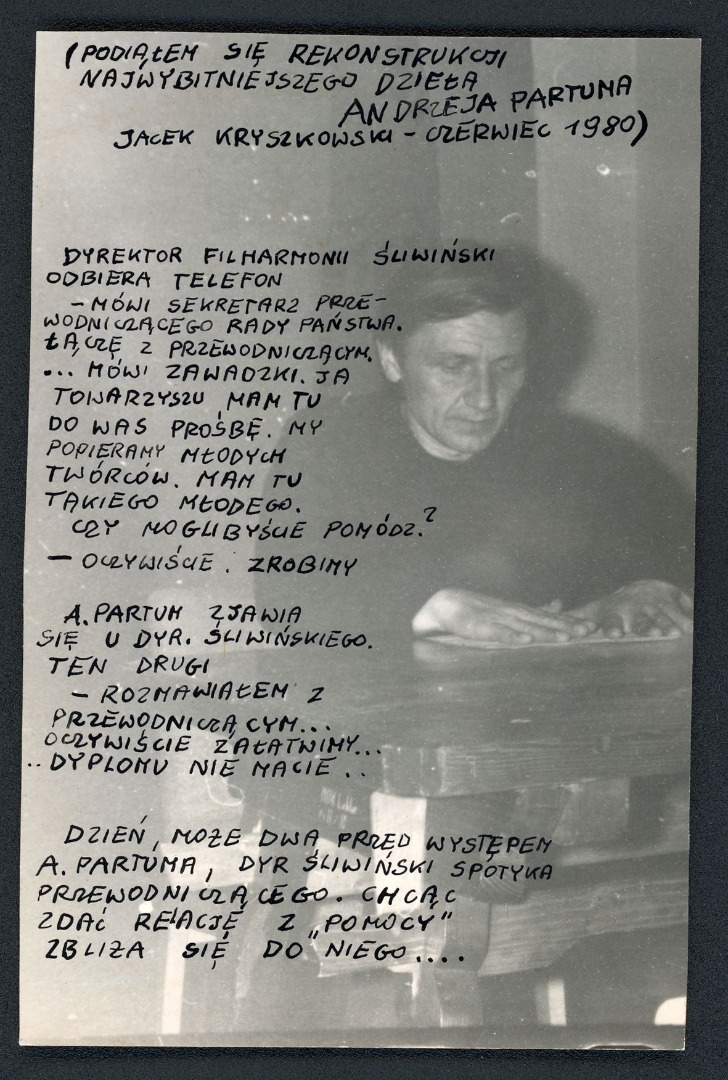 (PODJĄŁEM SIĘ REKONSTRUKCJI
NAJWYBITNIEJSZEGO DZIEŁA
ANDRZEJA PARTUMA
JACEK KRYSZKOWSKI - CZERWIEC 1980)
DYREKTOR FILHARMONII ŚLIWIŃSKI
ODBIERA TELEFON
- MÓWI SEKRETARZ PRZE-
WODNICZĄCEGO RADY PAŃSTWA.
ŁĄCZĘ Z PRZEWODNICZĄCYM.
... MÓWI ZAWADZKI. JA
TOWARZYSZU, MAM TU
DO WAS PROŚBĘ. MY
POPIERAMY MŁODYCH
TWÓRCÓW. MAM TU
TAKIEGO MŁODEGO.
CZY MOGLIBYŚCIE POMÓDZ?
- OCZYWIŚCIE. ZROBIMY
A. PARTUM ZJAWIA
SIĘ U DYR. ŚLIWIŃSKIEGO.
TEN DRUGI
- ROZMAWIAŁEM Z
PRZEWODNICZĄCYM...
OCZYWIŚCIE ZAŁATWIMY...
.. DYPLOMU NIE MACIE ..
DZIEŃ, MOŻE DWA PRZED WYSTĘPEM
A. PARTUMA, DYR ŚLIWIŃSKI SPOTYKA
PRZEWODNICZĄCEGO. CHCĄC
ZDAĆ RELACJĘ Z „POMOCY"
ZBLIŻA SIĘ DO NIEGO....